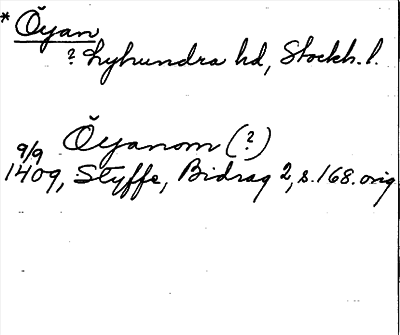 * Öyan
? Lyhundra hd, Stockh. l.
Öyanom (?)
9/9
1409, Styffe, Bidrag 2, s. 168. orig